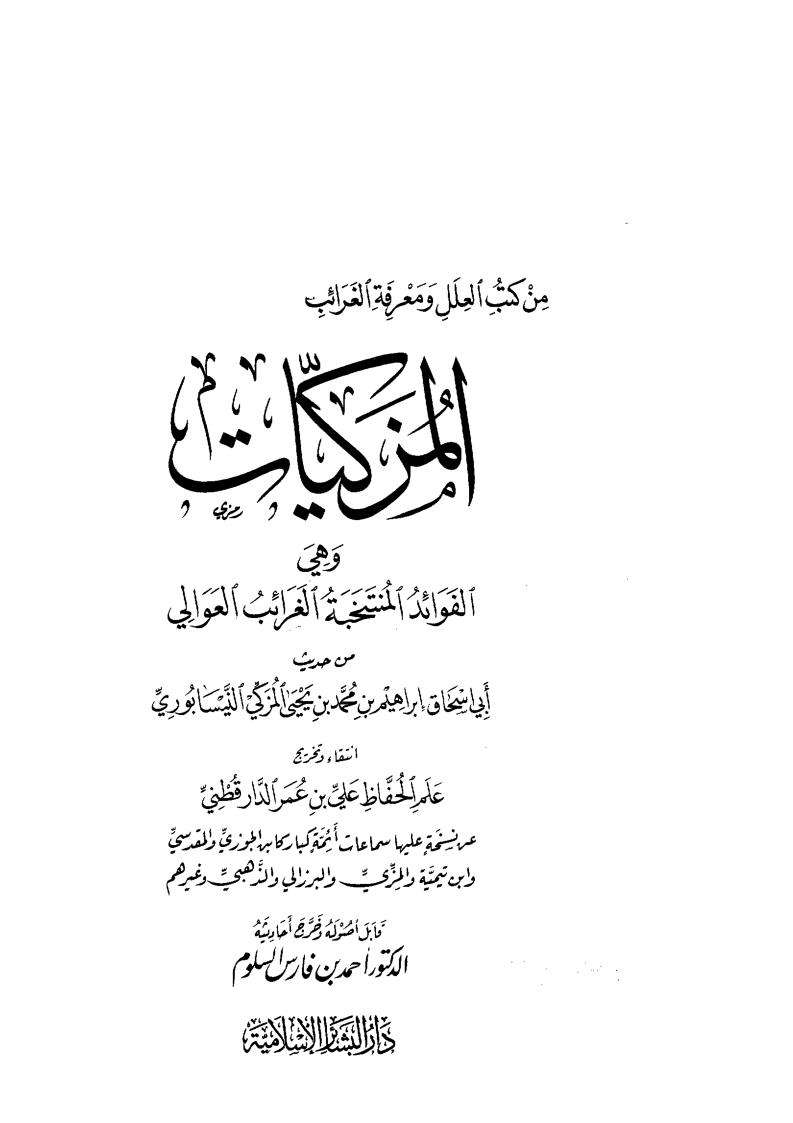 مِنْ كُتُبِ العِلَلِ وَمَعْرِفَةِ الغَرَائِبِ
المُزَكِّيَات
رمزي
وَهِيَ
الفَوَائِدُ المُنْتَخَبَةُ الغَرَائِبُ العَوَالِي
من حديث
أَبِي إِسْحَاق إِبْرَاهِيْم بنِ مُحَمَّد بنِ يَحْيَى المُزَكِّيْ النَّيْسَابُورِيِّ
انتقاء وتخريج
عَلَمِ الحُفَّاظِ عَلِيِّ بنِ عُمَرَ الدَّارقُطْنِيِّ
عن نسْخَةٍ عليها سماعات أَئِمَّةٍ كبار كابن الجوزيِّ والمقدسيِّ
وابن تيميَّة والمِزِّيِّ والبرزالي والذَّهبيِّ وغيرهم
قَابَلَ أُصُوْلَهُ وَخَرَّجَ أَحَادِيْثَهُ
الدكتور أحمد بن فارس السلوم
دَارُ البَشَائِر الإِسْلَامِيَّة